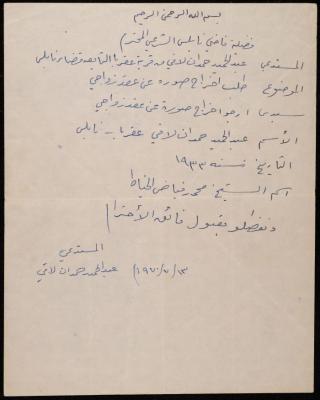 بسم الله الرحمن الرحيم
فضيلة قاضي نابلس الشرعي المحترم
المستدعي عبد الحميد حمدان لافي من قرية عقربا التابعه قضاء نابلس
الموضوع طلب اخراج صوره عن عقد زواجي
سيدي ارجو اخراج صورة عن عقد زواجي
الأسم عبد الحميد حمدان لافي عقربا - نابلس
التاريخ سنه ١٩٣٣
اسم الشيخ محمد فياض الخياط
وتفضلو بقبول فائق الأحترام
المستدعي
عبد الحميد حمدان لافي
١٩٧٠/٧/١٣